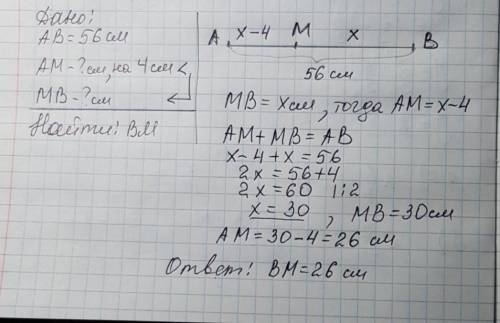 Дано:
AB = 56 см
AM - ? см, на 4 см <
MB - ? см
Найти: BM
A x-4 M x B
56 см
MB = x см, тогда AM = x-4
AM + MB = AB
x-4+x = 56
2x = 56+4
2x = 60 |:2
x = 30, MB = 30 см
AM = 30-4 = 26 см
Ответ: BM = 26 см